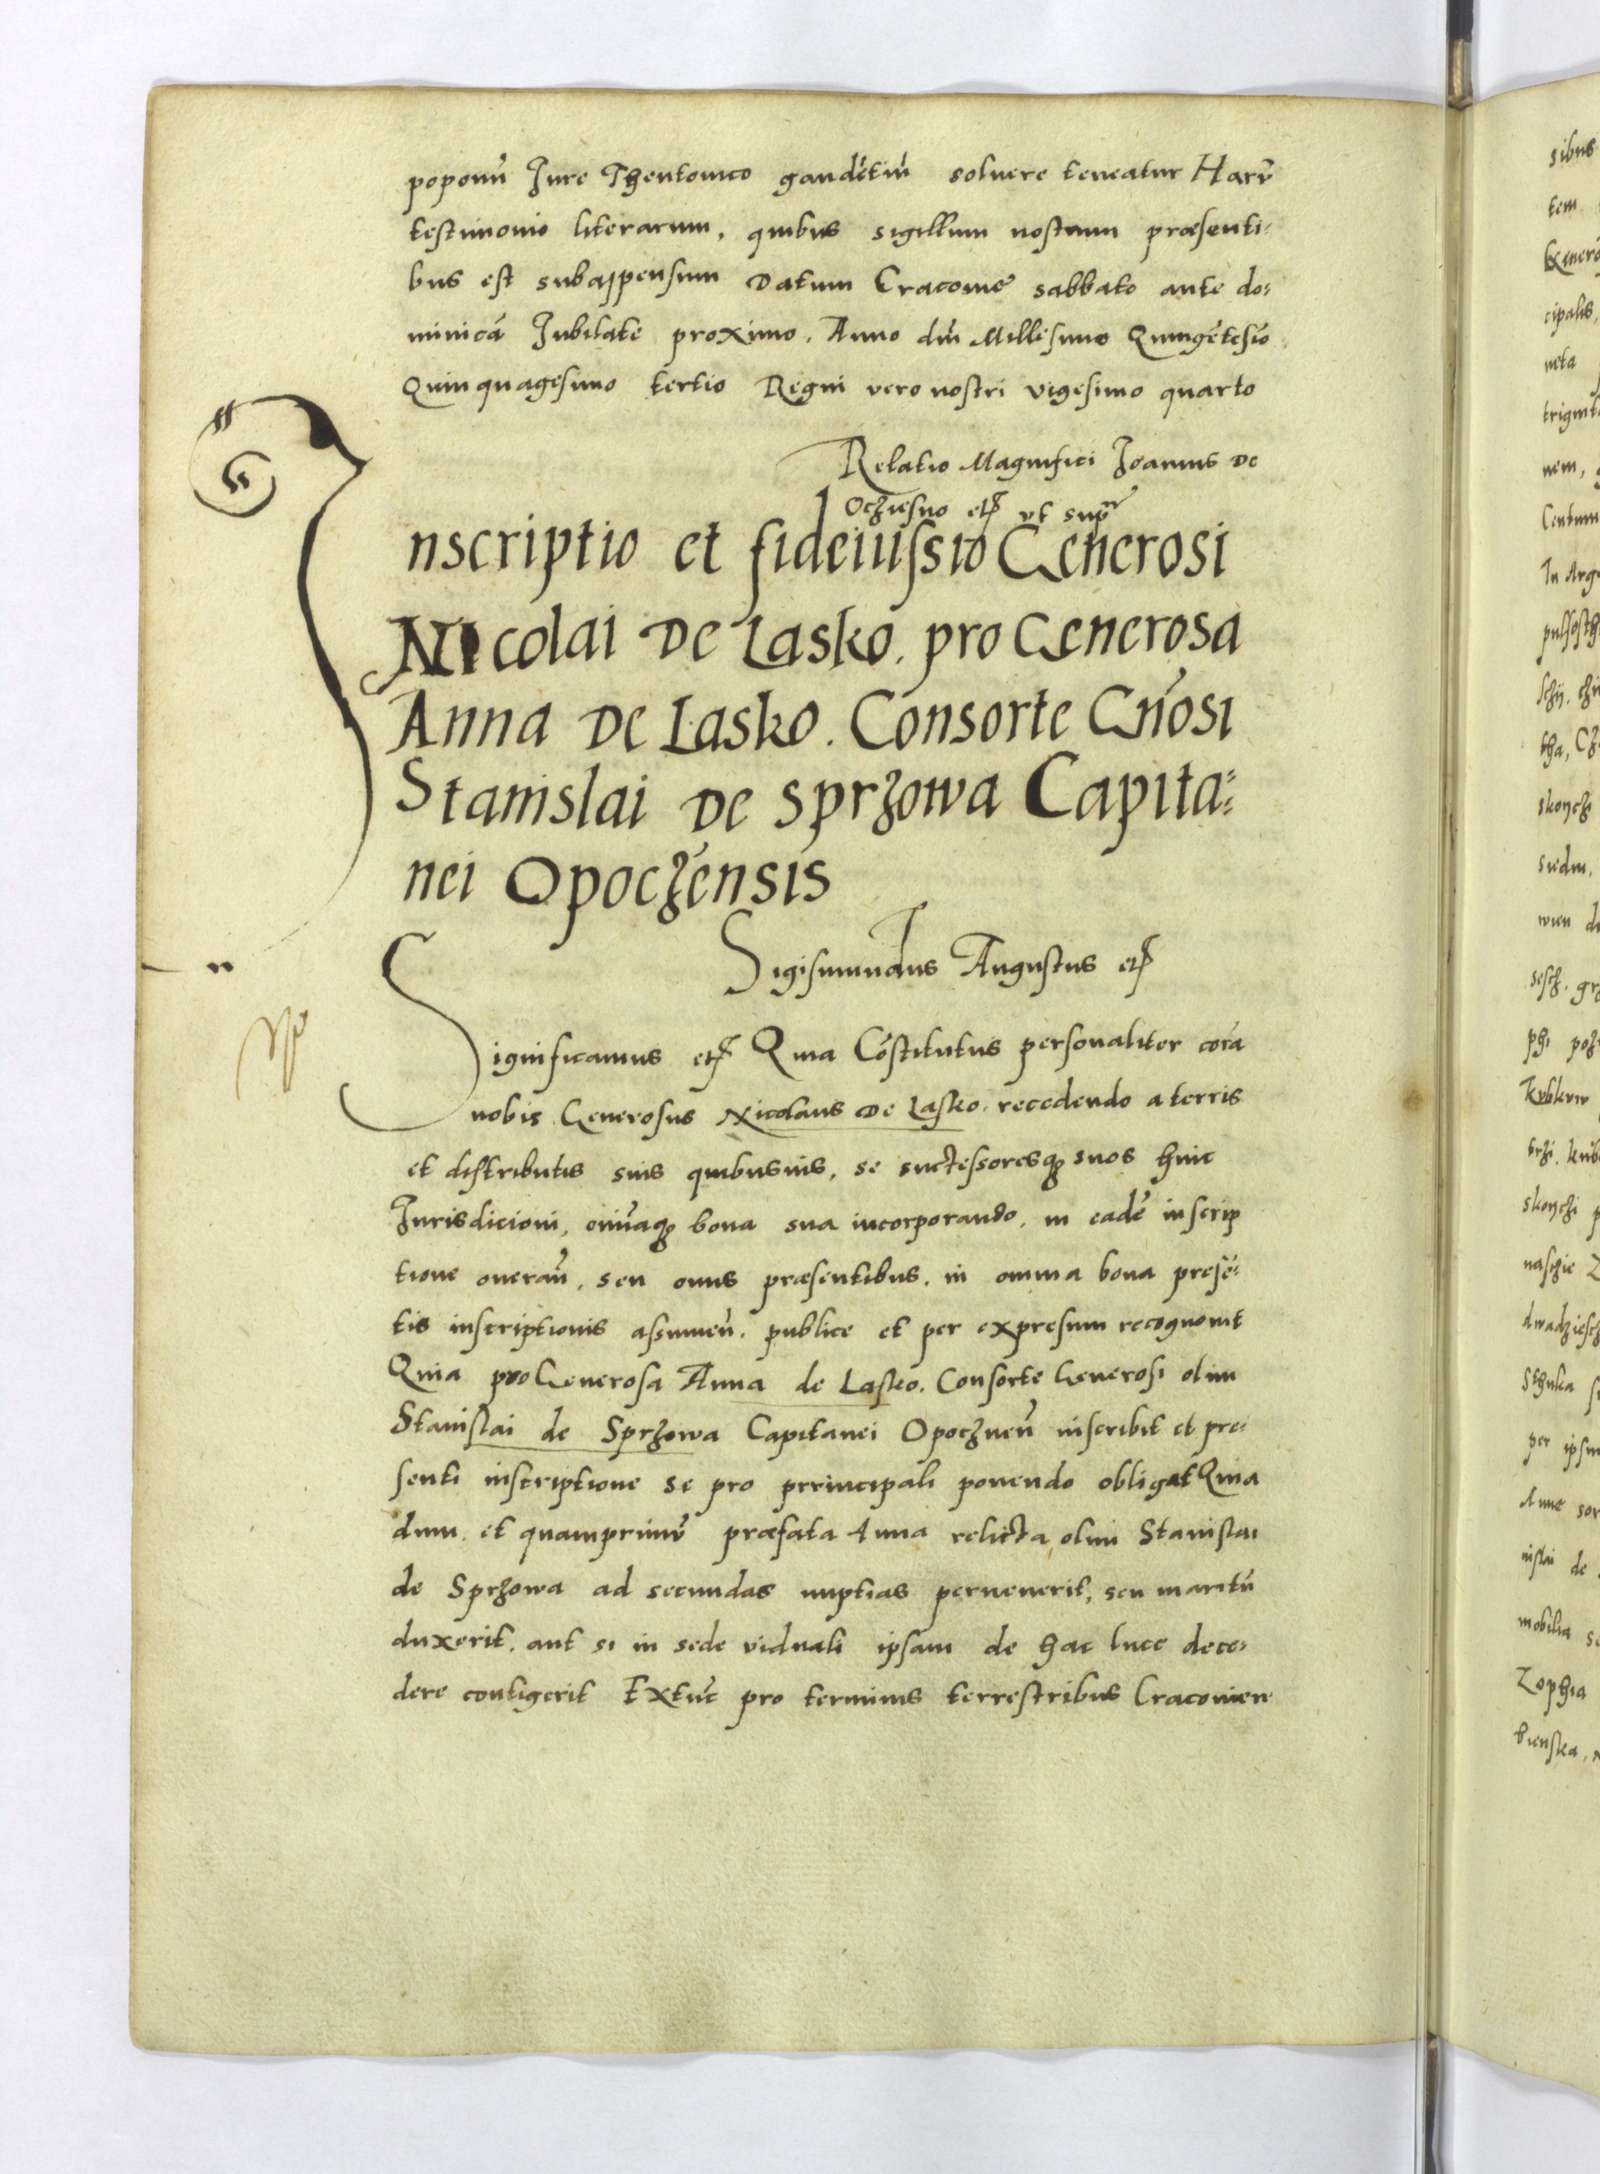 poponū Jure Theutonico gaudētiū soluere teneatur Harū
testimonio literarum, quibus sigillum nostrum præsenti-
bus est subappensum Datum Cracoviæ sabbato ante do-
minicā Jubilate proximo. Anno dnī Millesimo Quingētesīo
Quinquagesimo tertio Regni vero nostri vigesimo quarto
Relatio Magnifici Joannis De
Ocziesno etc ut supr
Inscriptio et fideiussio Generosi
Nicolai De Lasko. pro Generosa
Anna De Lasko. Consorte Gn̄osi
Stanislai De Sprzowa Capita-
nei Opoczensis
Sigismundus Augustus etc
Significamus etc Quia Cōstitutus personaliter corā
nobis Generosus Nicolaus De Lasko. recedendo a terris
et districtibus suis quibusuis, se successoresq suos huic
Jurisdicioni, omniaq bona sua incorporando, in eadē inscrip
tione onerañ. seu onus præsentibus. in omnia bona presē-
tis inscriptionis assumeñ. publice et per expresum recognouit
Quia pro Generosa Anna de Lasko. Consorte Generosi olim
Stanislai de Sprzowa Capitanei Opoczneñ inscribit et pre-
senti inscriptione se pro prrincipali ponendo obligat Quia
dum. et quamprimū præfata Anna relicta olim Stanislai
de Sprzowa ad secundas nuptias peruenerit, seu maritū
duxerit. aut si in sede viduali ipsam de hac luce dece-
dere contigerit Extūc pro terminis terrestribus Cracovien